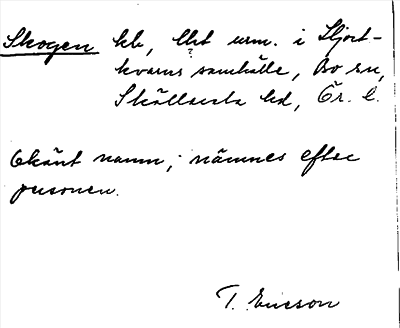 Skogen kb, lht urm. i Hjort-
kvarns samhälle, Bo sn,
Skyllersta hd, Ör. l.
Okänt namn; nämnes efter
personen.
T. Ericson